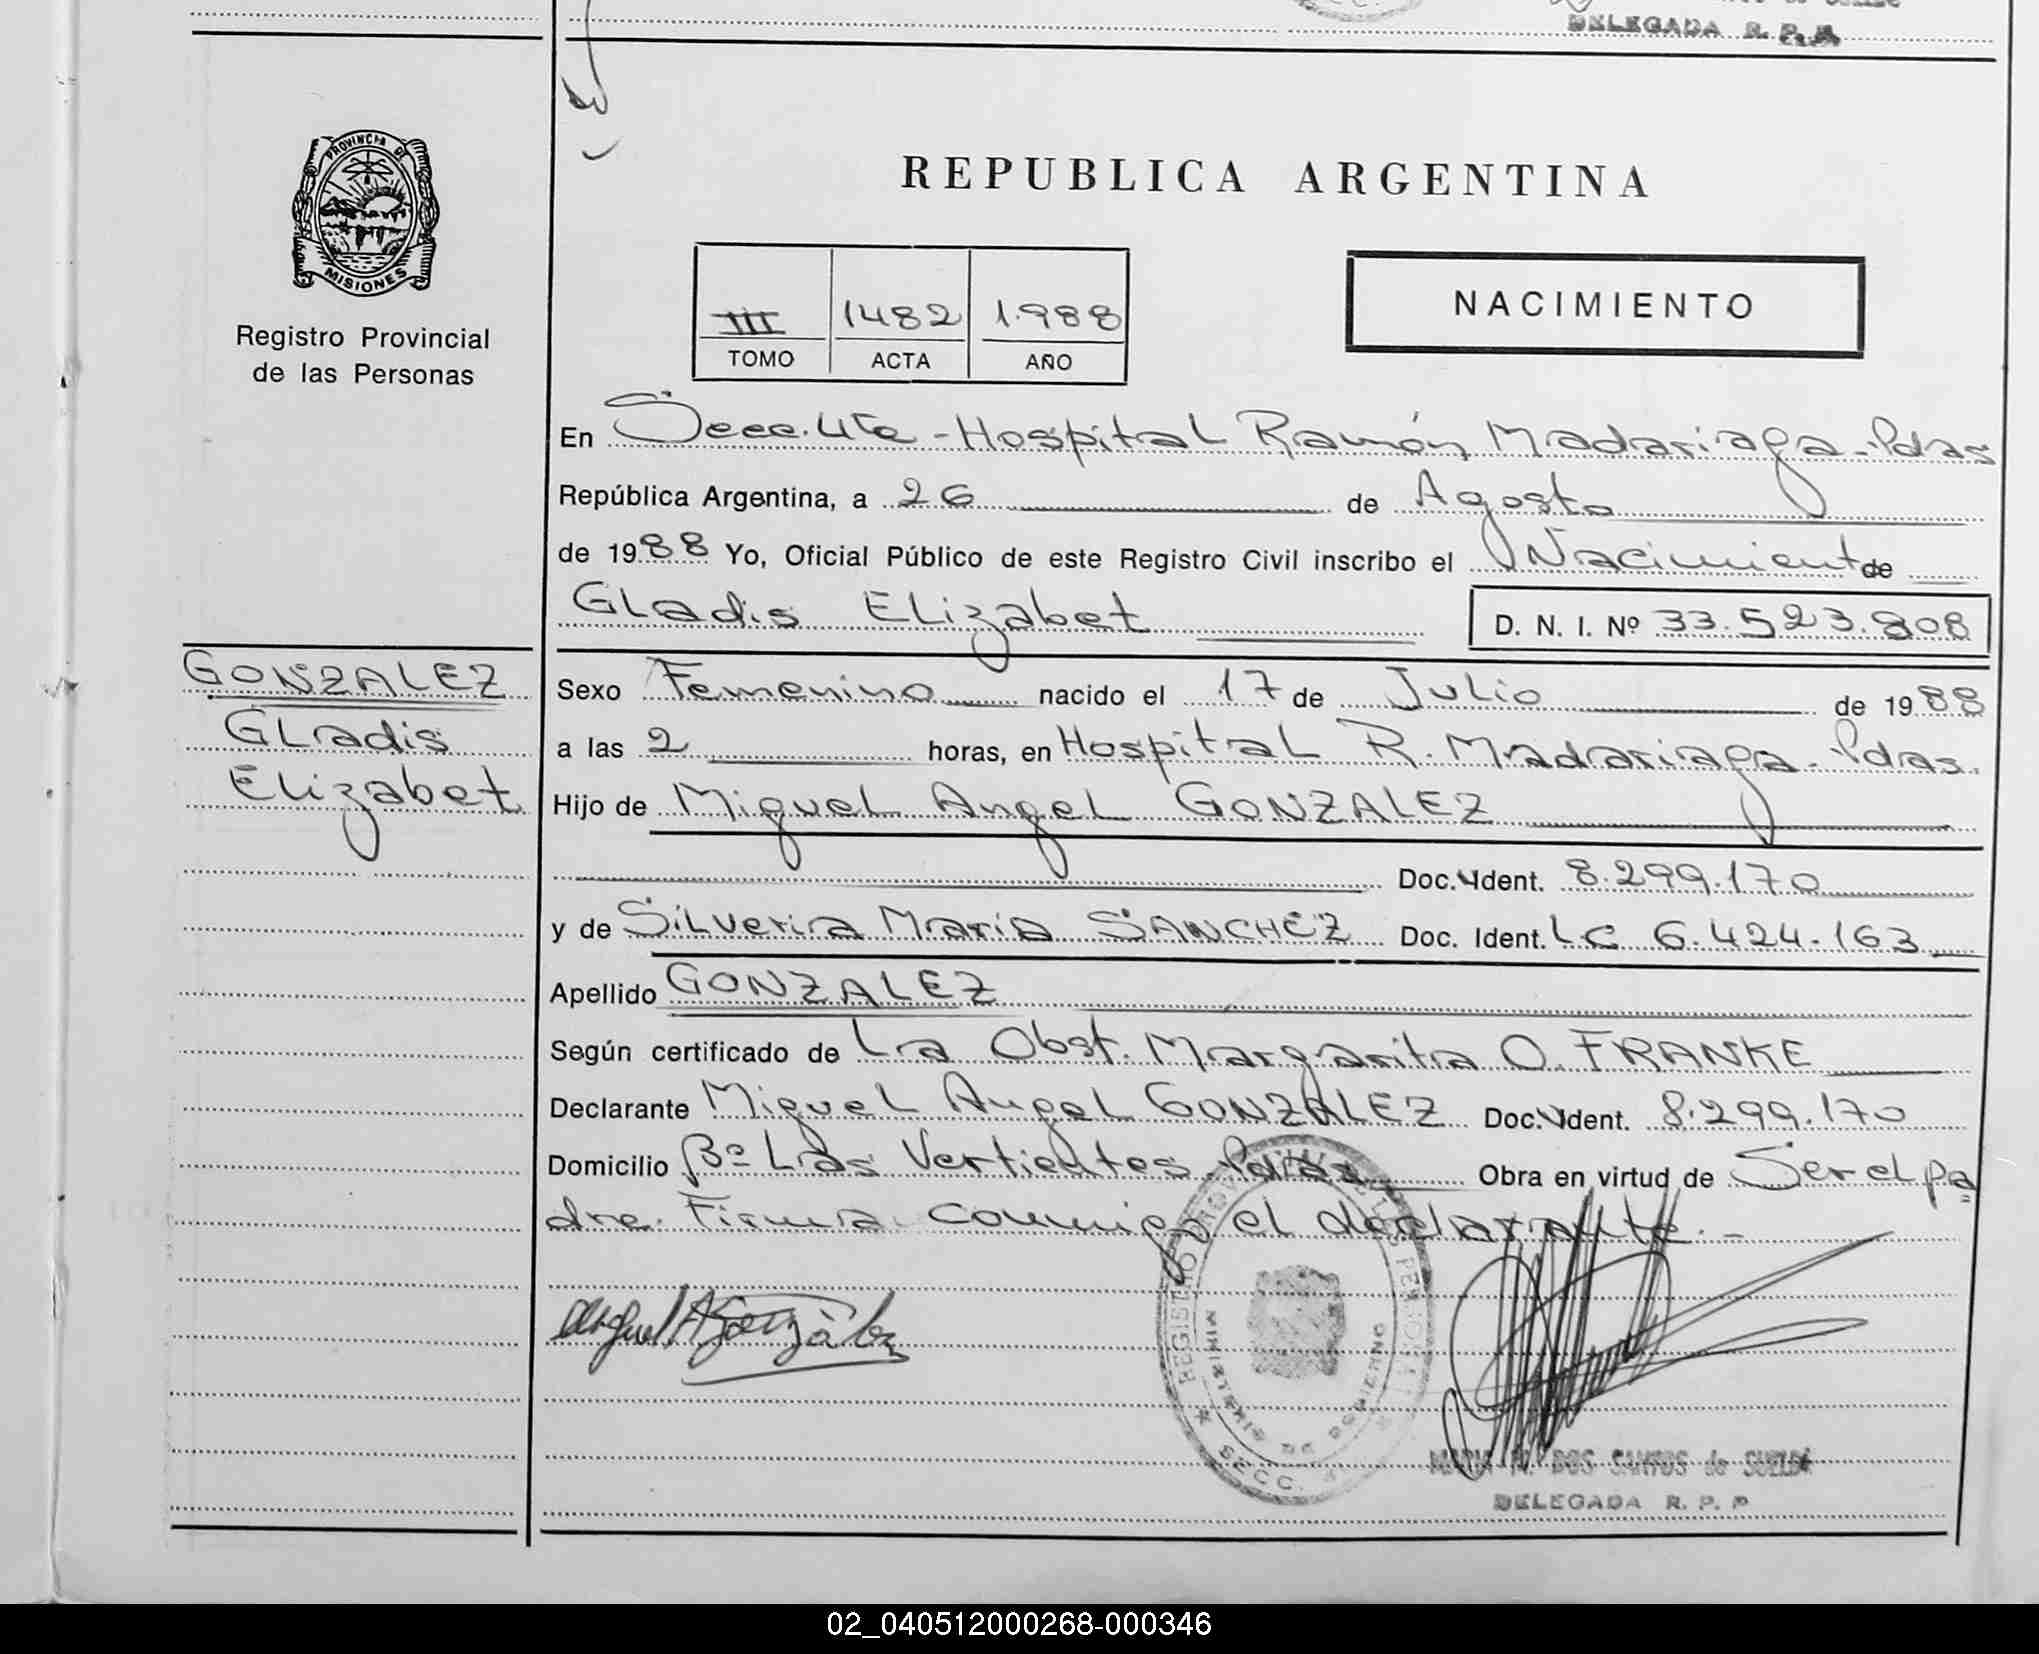 DELEGADA R. P. P.
PROVINCIA DE
MISIONES
Registro Provincial
de las Personas
REPUBLICA ARGENTINA
III 1482 1.988
TOMO ACTA AÑO
NACIMIENTO
En Secc. 4ta - Hospital Ramón Madariaga - Pdas
República Argentina, a 26 de Agosto
de 1988 Yo, Oficial Público de este Registro Civil inscribo el Nacimiento de
Gladis Elizabet D. N. I. Nº 33.523.808
GONZALEZ
Gladis
Elizabet
Sexo Femenino nacido el 17 de Julio de 1988
a las 2 horas, en Hospital R. Madariaga - Pdas.
Hijo de Miguel Angel GONZALEZ
Doc. Ident. 8.299.170
y de Silveria Maria SANCHEZ Doc. Ident. LC 6.424.163
Apellido GONZALEZ
Según certificado de La Obst. Margarita O. FRANKE
Declarante Miguel Angel GONZALEZ Doc. Ident. 8.299.170
Domicilio Bº Las Vertientes Pdas Obra en virtud de Ser el pa=
dre. Firma conmigo el declarante. -
Miguel A Gonzàlez
REGISTRO PROVINCIAL DE LAS PERSONAS
MINISTERIO DE GOBIERNO
SECC.
MARIA M. DOS SANTOS de SUELDO
DELEGADA R. P. P
02_040512000268-000346